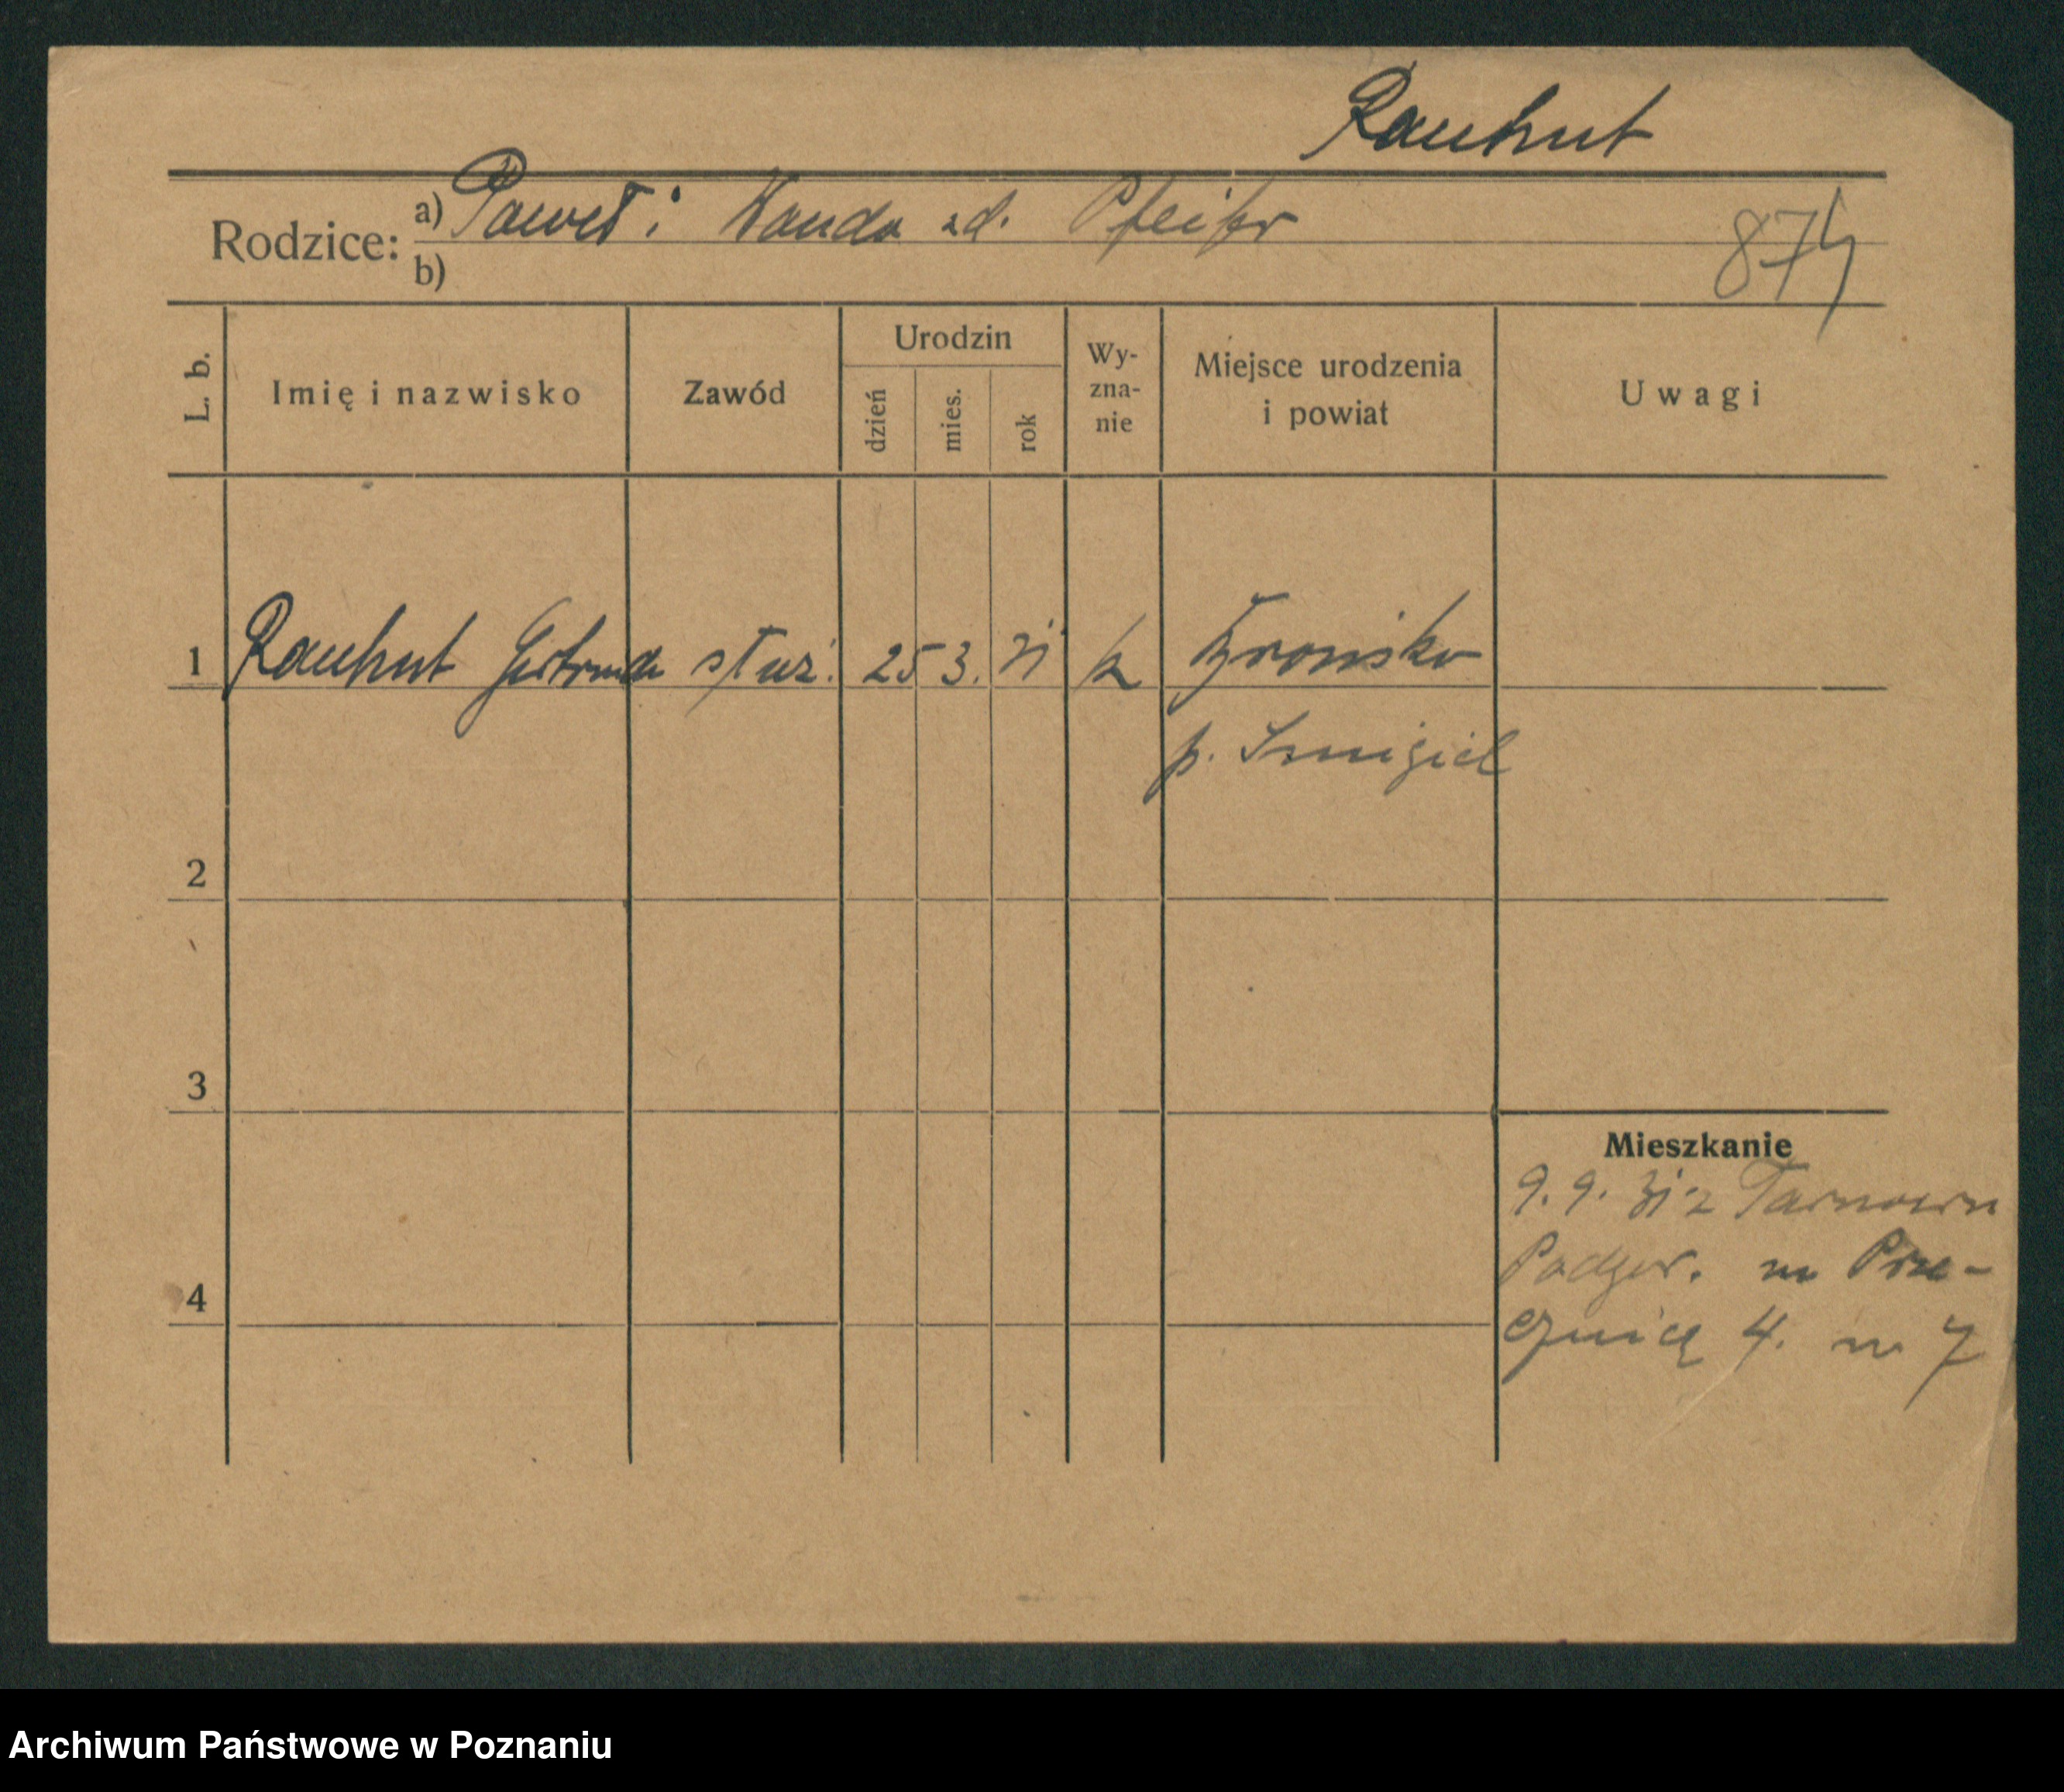 Rauhut
Rodzice: a) Paweł i Wanda zd. Pfeifer
b)
874
L. b.
Imię i nazwisko
Zawód
Urodzin
dzień
mies.
rok
Wy-
zna-
nie
Miejsce urodzenia
i powiat
Uwagi
1 Rauhut Gertruda służ. 25 3. k
p. Śmigiel
2
3
4
Mieszkanie
9. 9. 31 z Tarnowa
Podgór. na Prze-
cznicę 4. m 7
Archiwum Państwowe w Poznaniu